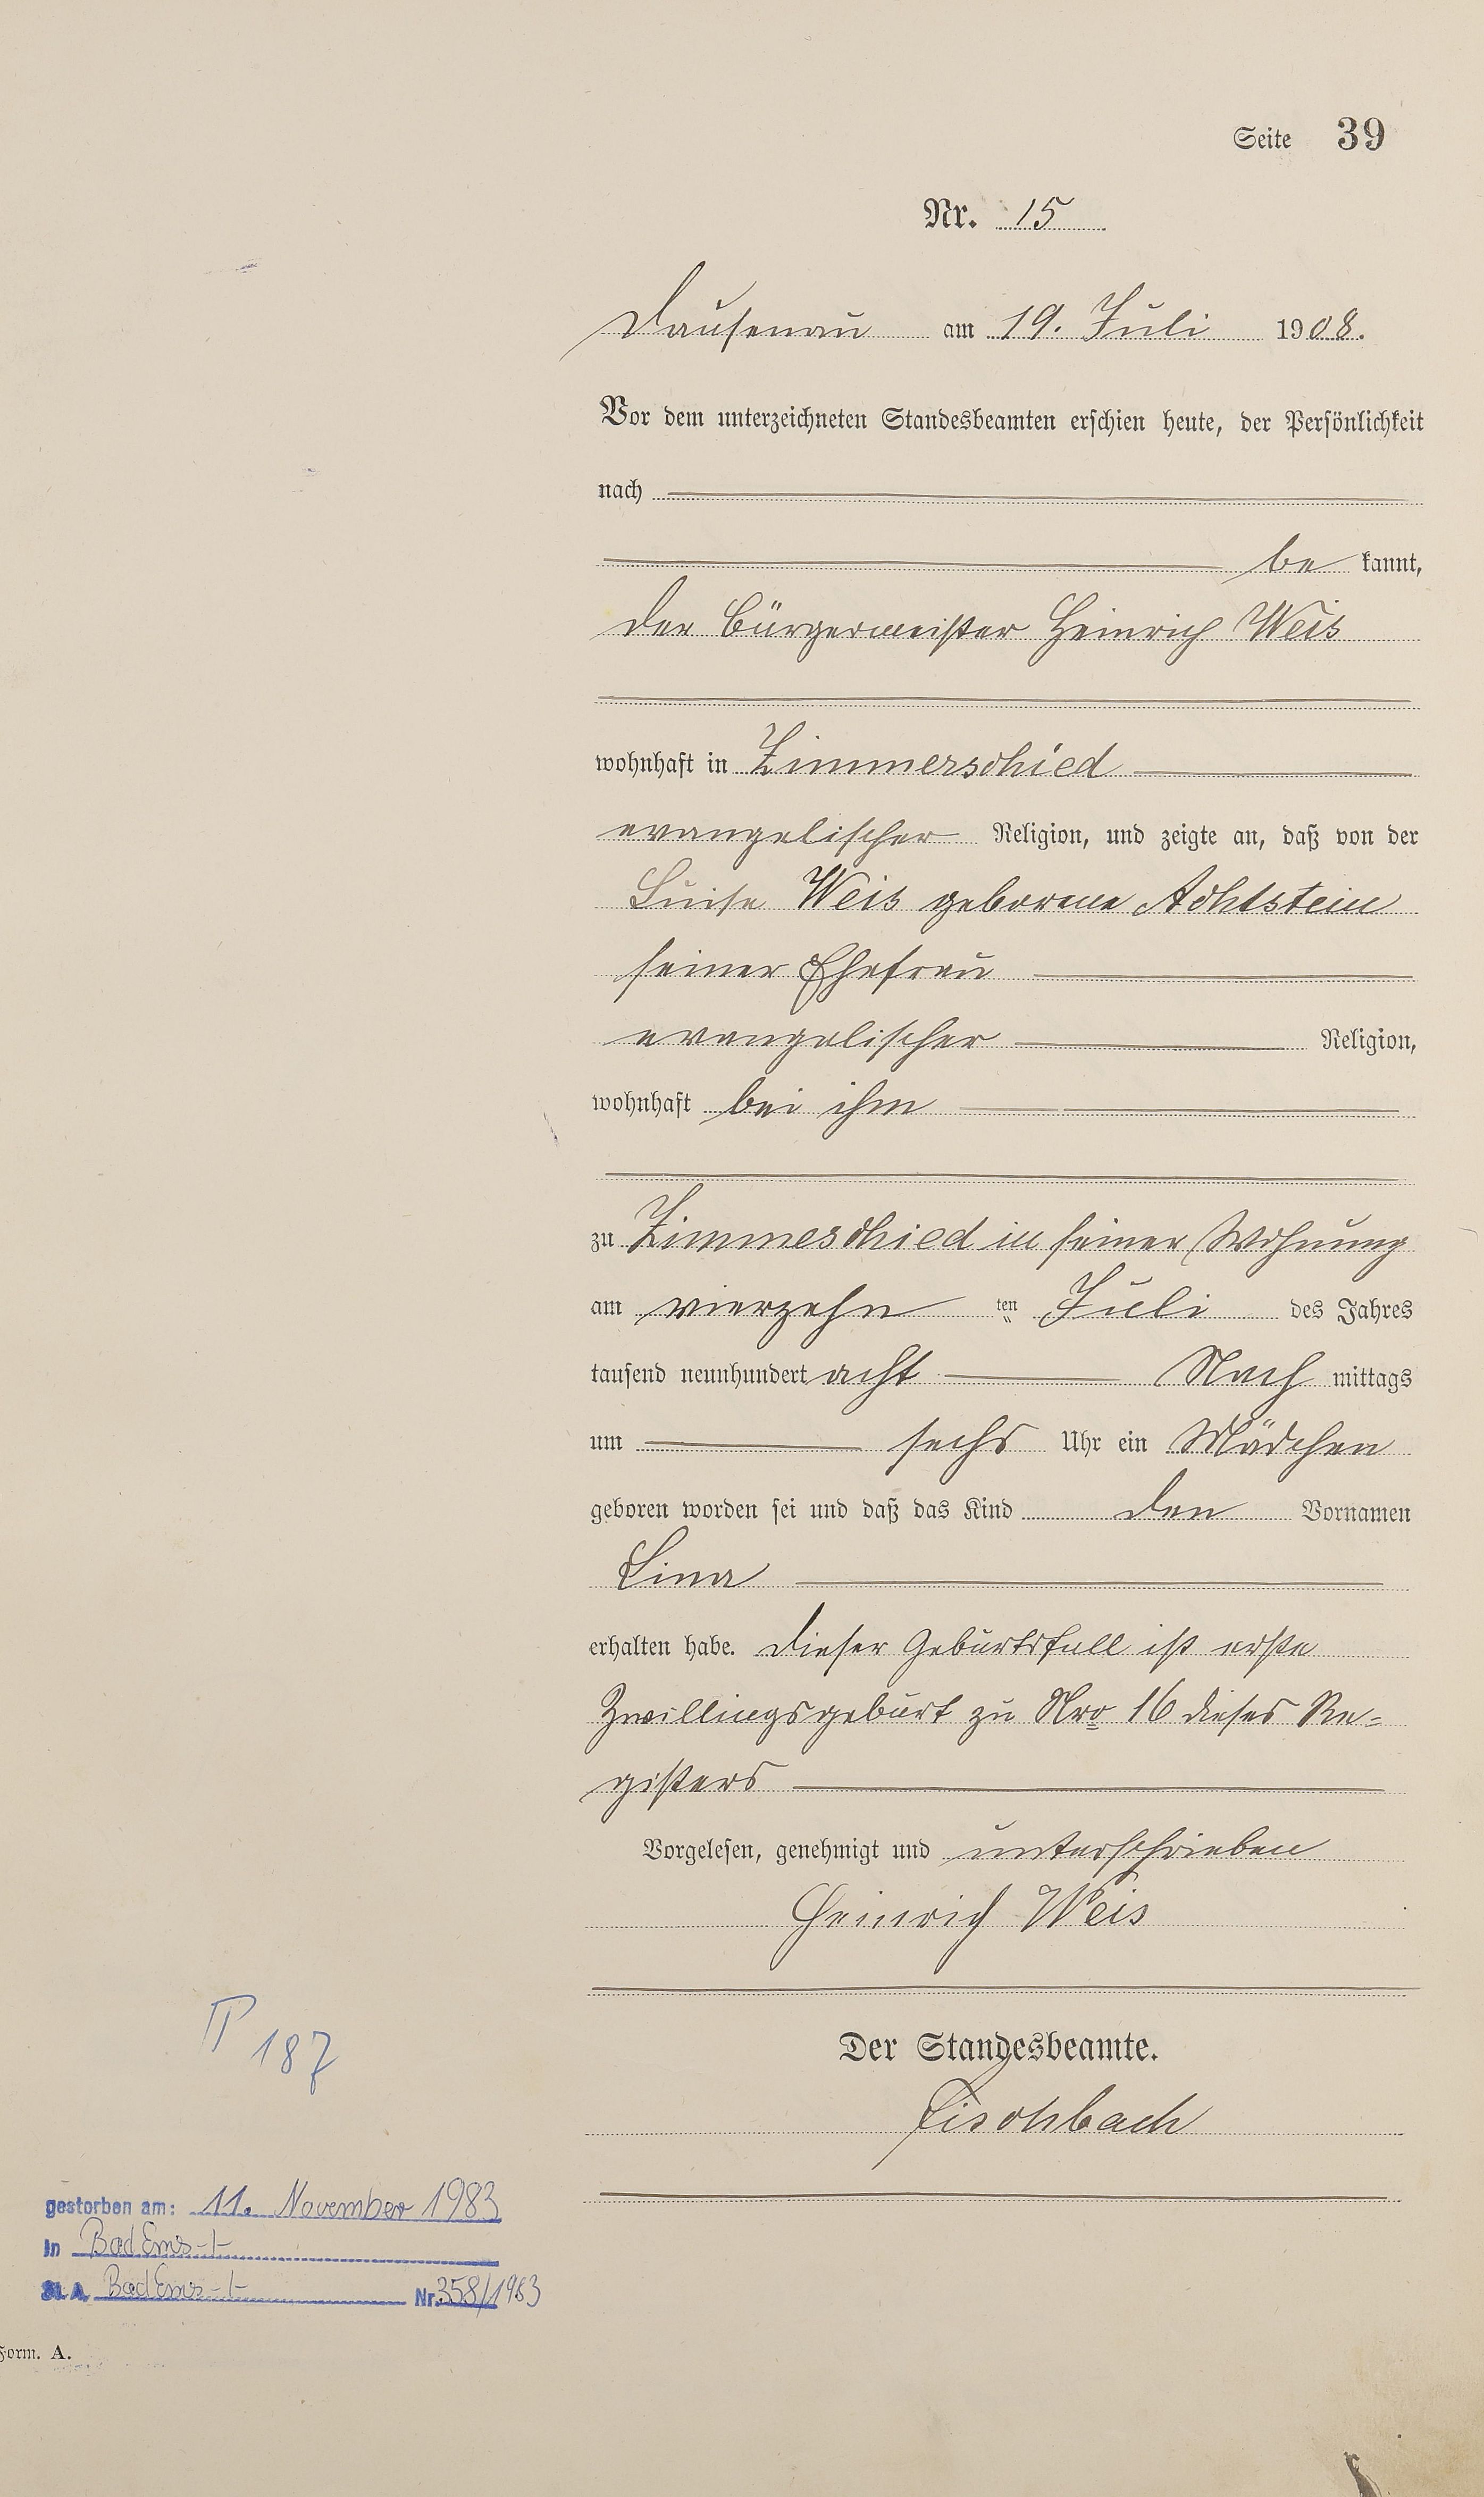 Seite 39
Nr. 15
Dausenau am 19. Juli 1908.
Vor dem unterzeichneten Standesbeamten erschien heute, der Persönlichkeit
nach
be kannt,
der Bürgermeister Heinrich Weis
wohnhaft in Zimmerschied
evangelischer Religion, und zeigte an, daß von der
Luise Weis geborene Achtstein
seiner Ehefrau
evangelischer Religion,
wohnhaft bei ihm
zu Zimmeschied in seiner Wohnung
am vierzehn ten Juli des Jahres
tausend neunhundert acht Nach mittags
um sechs Uhr ein Mädchen
geboren worden sei und daß das Kind den Vornamen
Lina
erhalten habe. Dieser Geburtsfall ist erste
Zwillingsgeburt zu Nro 16 dieses Re=
gisters
Vorgelesen, genehmigt und unterschrieben
Heinrich Weis
Der Standesbeamte.
Fischbach
187
gestorben am: 11. November 1983
in Bad Ems
St. A. Bad Ems Nr. 358/1983
Form. A.